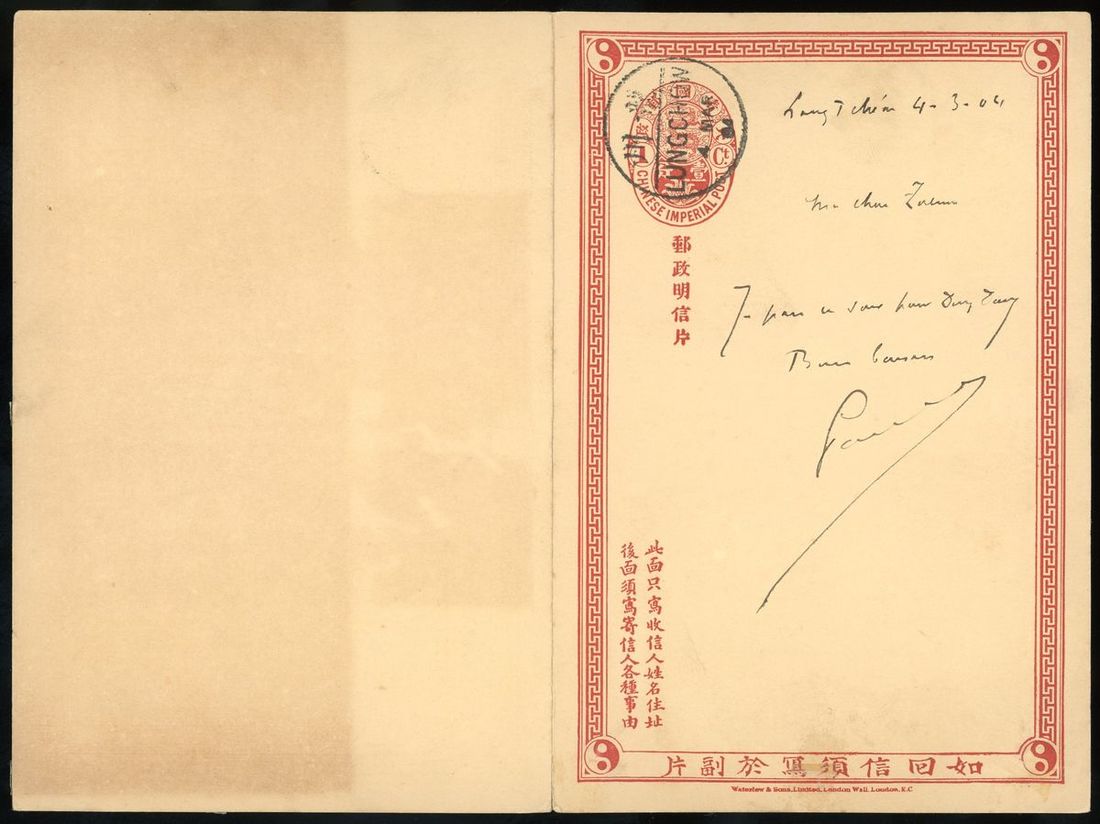 LUNGCHOW
4 MAR
1 Ct
CHINESE IMPERIAL POST
郵政明信片
4-3-04
Mon cher
Je pars ce soir pour Dong Dang
此面只寫收信人姓名住址
後面須寫寄信人各種事由
如回信須寫於副片
Waterlow & Sons, Limited, London Wall, London, E.C